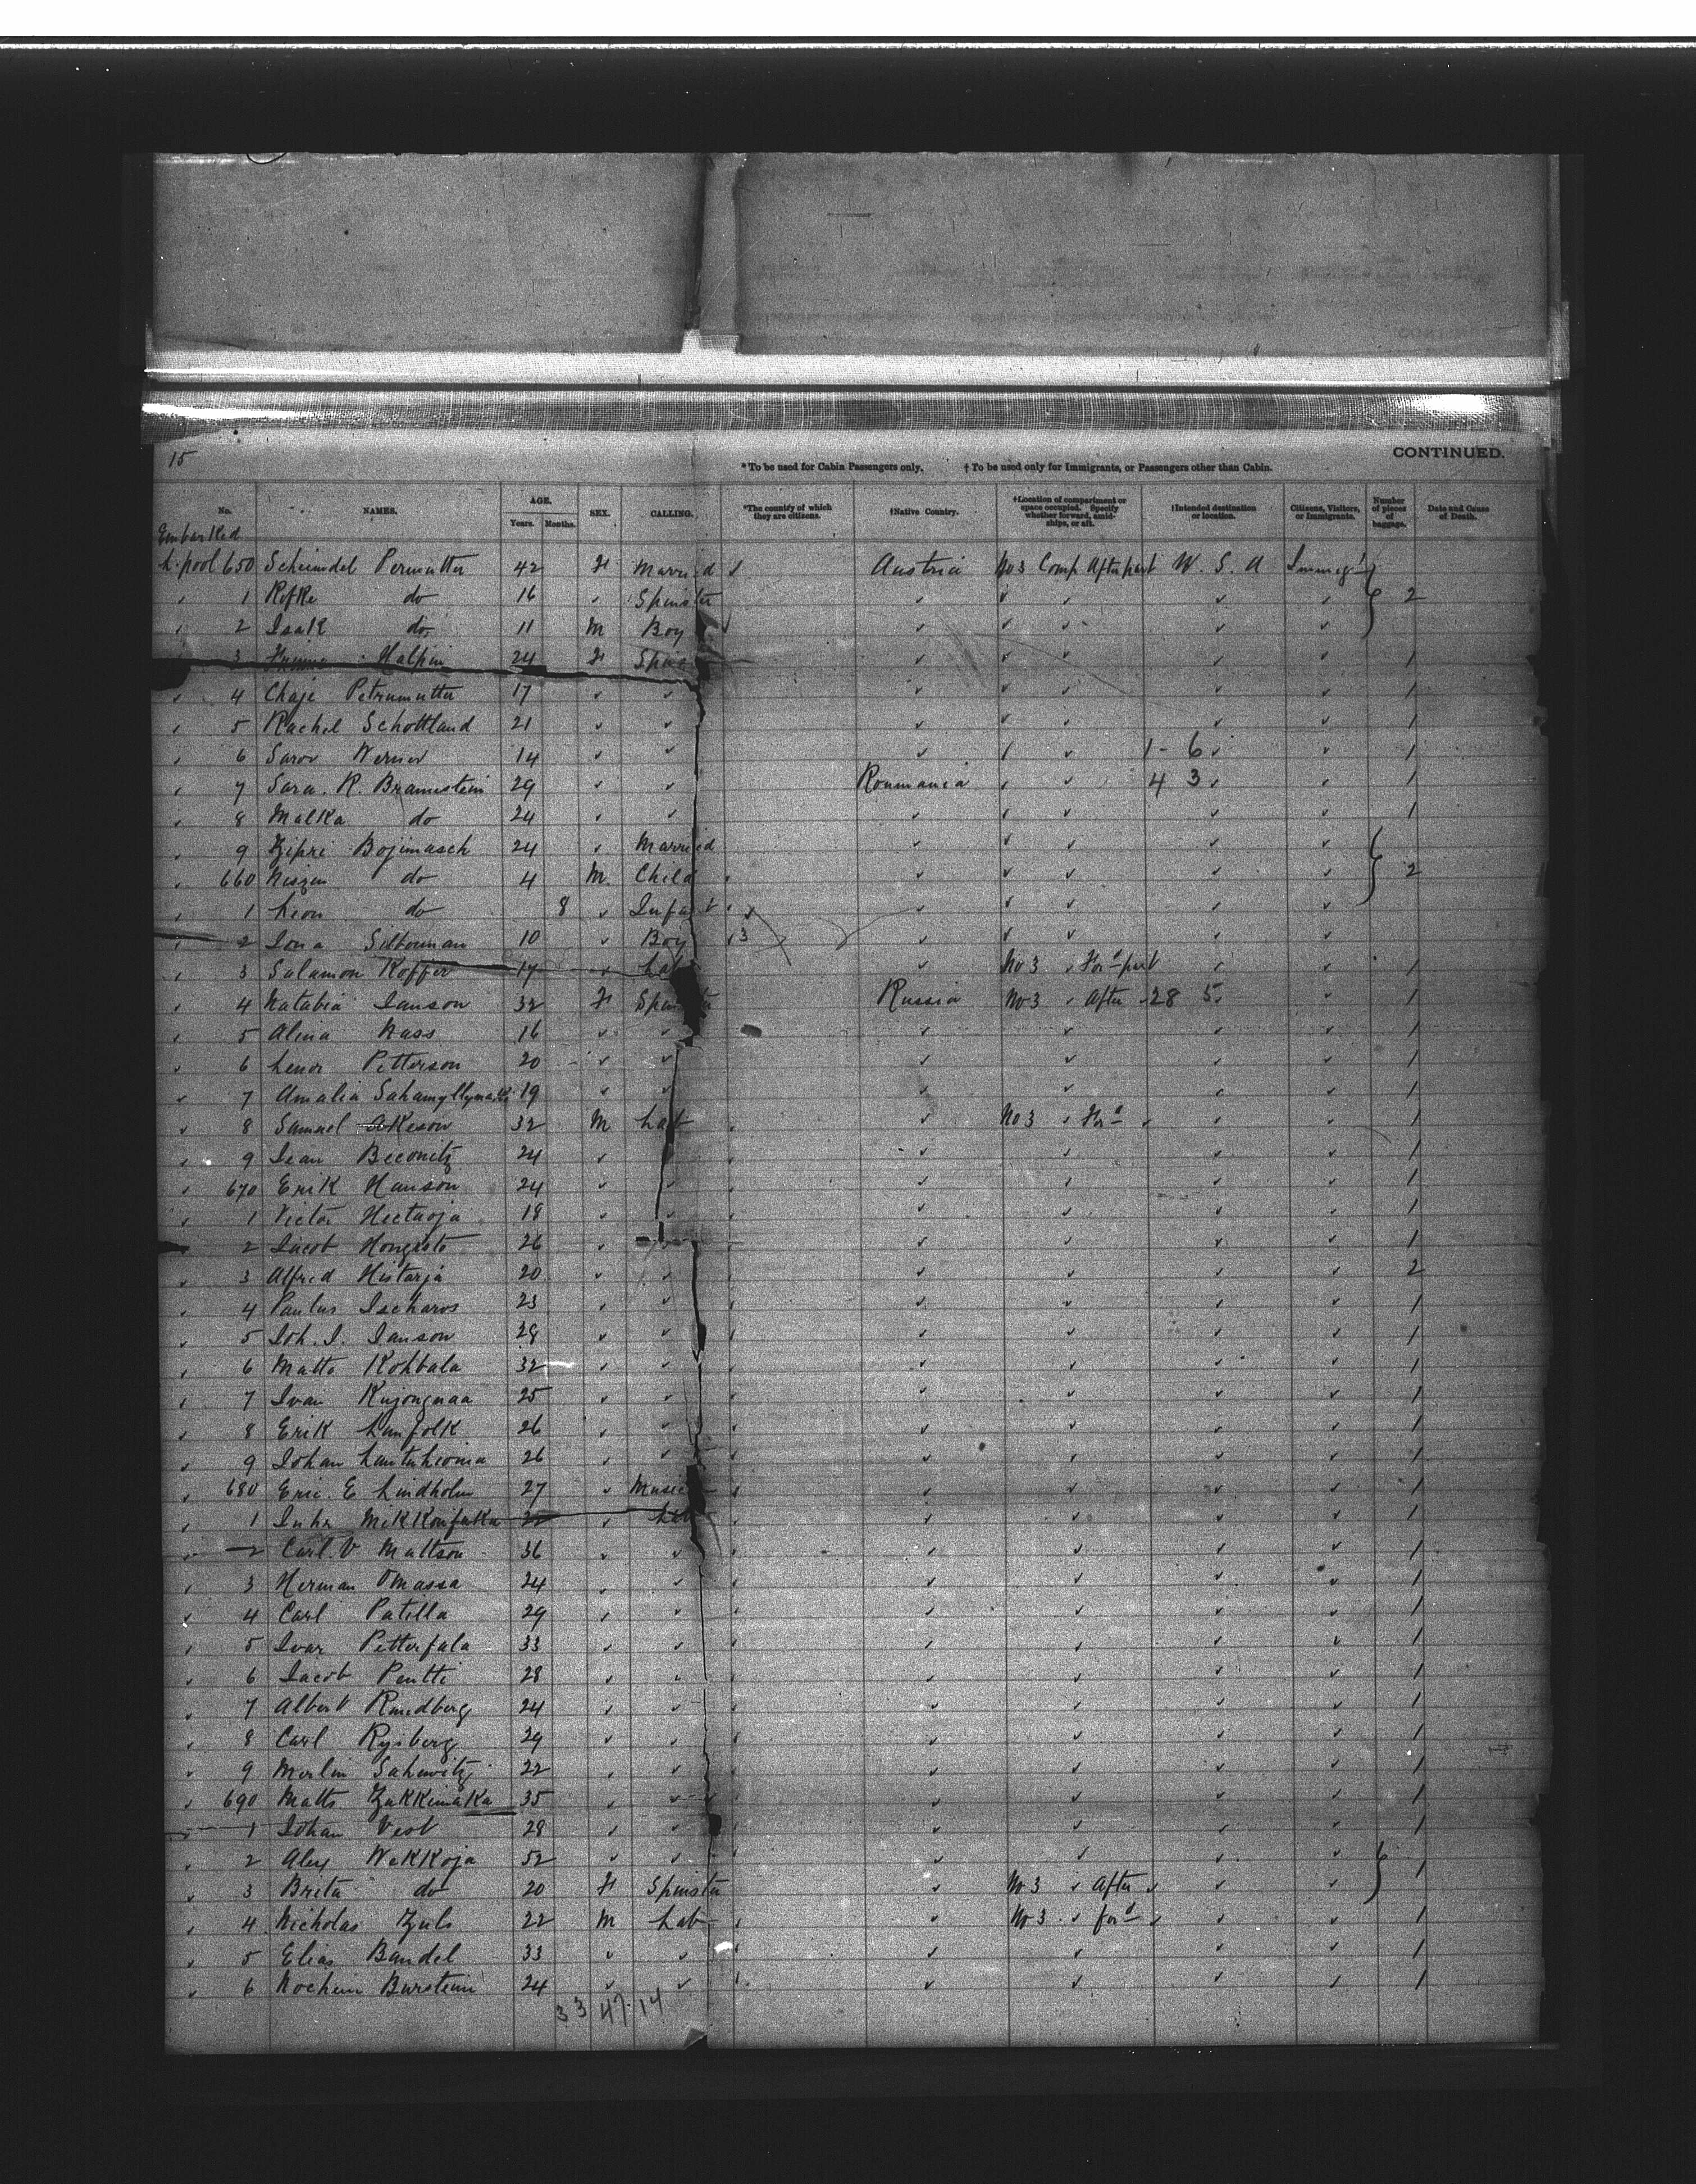 15
CONTINUED.
* To be used for Cabin Passengers only. † To be used only for Immigrants, or Passengers other than Cabin.
No. NAMES. AGE. Years. Months. SEX. CALLING. *The country of which they are citizens. †Native Country. †Location of compartment or space occupied. Specify whether forward, amidships, or aft. †Intended destination or location. Citizens, Visitors, or Immigrants. Number of pieces of baggage. Date and Cause of Death.
Embarked
L.pool 650 Scheindel Permutter 42 F Married Austria No 3 Comp After part U. S. A Immigt
1 Rifke do 16 ✓ Spinster ✓ ✓ ✓ ✓ ✓ 2
2 Isak do 11 M Boy ✓ ✓ ✓ ✓ ✓
3 Halpin 24 F Spins ✓ ✓ ✓ ✓ ✓ 1
4 Chaje Petrumutter 17 ✓ ✓ ✓ ✓ ✓ ✓ ✓ 1
5 Rachel Schottland 21 ✓ ✓ ✓ ✓ ✓ ✓ ✓ 1
6 Werner 14 ✓ ✓ ✓ ✓ 1 - 6 ✓ ✓ 1
7 Sara. R. Bramstein 29 ✓ ✓ Roumania ✓ ✓ 4 3 ✓ ✓ 1
8 Malka do 24 ✓ ✓ ✓ ✓ ✓ ✓ ✓ 1
9 Zipri Bojimasch 24 ✓ Married ✓ ✓ ✓ ✓ ✓
660 Niszin do 4 M. Child ✓ ✓ ✓ ✓ ✓ 2
1 Leon do 8 ✓ Infant ✓ ✓ ✓ ✓ ✓
2 Iona Silberman 10 ✓ Boy 3 ✓ ✓ ✓ ✓ ✓
3 Salamon Koffer 17 ✓ Lab ✓ No 3 ✓ Ford part ✓ ✓ 1
4 Natabia Ianson 32 F Spinster Russia No 3 ✓ After 28 5 ✓ 1
5 Alina Nass 16 ✓ ✓ ✓ ✓ ✓ ✓ 1
6 Lenor Petterson 20 ✓ ✓ ✓ ✓ ✓ ✓ 1
7 Amalia 19 ✓ ✓ ✓ ✓ ✓ ✓ 1
8 Samuel Akeson 32 M Lab ✓ No 3 ✓ Ford ✓ ✓ 1
9 Ivan Beconitz 24 ✓ ✓ ✓ ✓ ✓ 1
670 Erik Hanson 24 ✓ ✓ ✓ ✓ ✓ ✓ 1
1 Victor Hectaoja 18 ✓ ✓ ✓ ✓ ✓ ✓ 1
2 Iacob Hongisto 26 ✓ ✓ ✓ ✓ ✓ 1
3 Alfred Histarja 20 ✓ ✓ ✓ ✓ ✓ ✓ 2
4 Paulus Ischaros 23 ✓ ✓ ✓ ✓ ✓ ✓ 1
5 Joh. I. Ianson 28 ✓ ✓ ✓ ✓ ✓ ✓ 1
6 Matts Kohbala 32 ✓ ✓ ✓ ✓ ✓ ✓ 1
7 Ivan Kujongnaa 25 ✓ ✓ ✓ ✓ ✓ ✓ 1
8 Erik Lunfolk 26 ✓ ✓ ✓ ✓ ✓ ✓ 1
9 Iohan 26 ✓ ✓ ✓ ✓ ✓ ✓ 1
680 Eric. E Lindholm 27 ✓ ✓ ✓ ✓ ✓ 1
1 Juha 22 ✓ Lab ✓ ✓ ✓ ✓ 1
2 Carl. V Mattson 36 ✓ ✓ ✓ ✓ ✓ ✓ 1
3 Herman Omassa 24 ✓ ✓ ✓ ✓ ✓ ✓ 1
4 Carl Patilla 29 ✓ ✓ ✓ ✓ ✓ ✓ 1
5 Ivar Petterfala 33 ✓ ✓ ✓ ✓ ✓ ✓ 1
6 Iacob Pentti 28 ✓ ✓ ✓ ✓ ✓ ✓ 1
7 Albert Rundberg 24 ✓ ✓ ✓ ✓ ✓ ✓ 1
8 Carl Rysberg 29 ✓ ✓ ✓ ✓ ✓ ✓ 1
9 Merlin Sahuvitz 22 ✓ ✓ ✓ ✓ ✓ ✓ 1
690 Matts Zukkimaka 35 ✓ ✓ ✓ ✓ ✓ ✓ 1
1 Iohan Vest 28 ✓ ✓ ✓ ✓ ✓ ✓ 1
2 Alex Wekkoja 52 ✓ ✓ ✓ ✓ ✓ ✓
3 Brita do 20 F Spinster ✓ No 3 ✓ After ✓ ✓ 1
4 Nicholas Zuls 22 M Lab ✓ No 3 ✓ ford ✓ ✓ 1
5 Elias Bandel 33 ✓ ✓ ✓ ✓ ✓ ✓ 1
6 Nochem Burstein 24 ✓ ✓ ✓ ✓ ✓ ✓ 1
33 47. 14